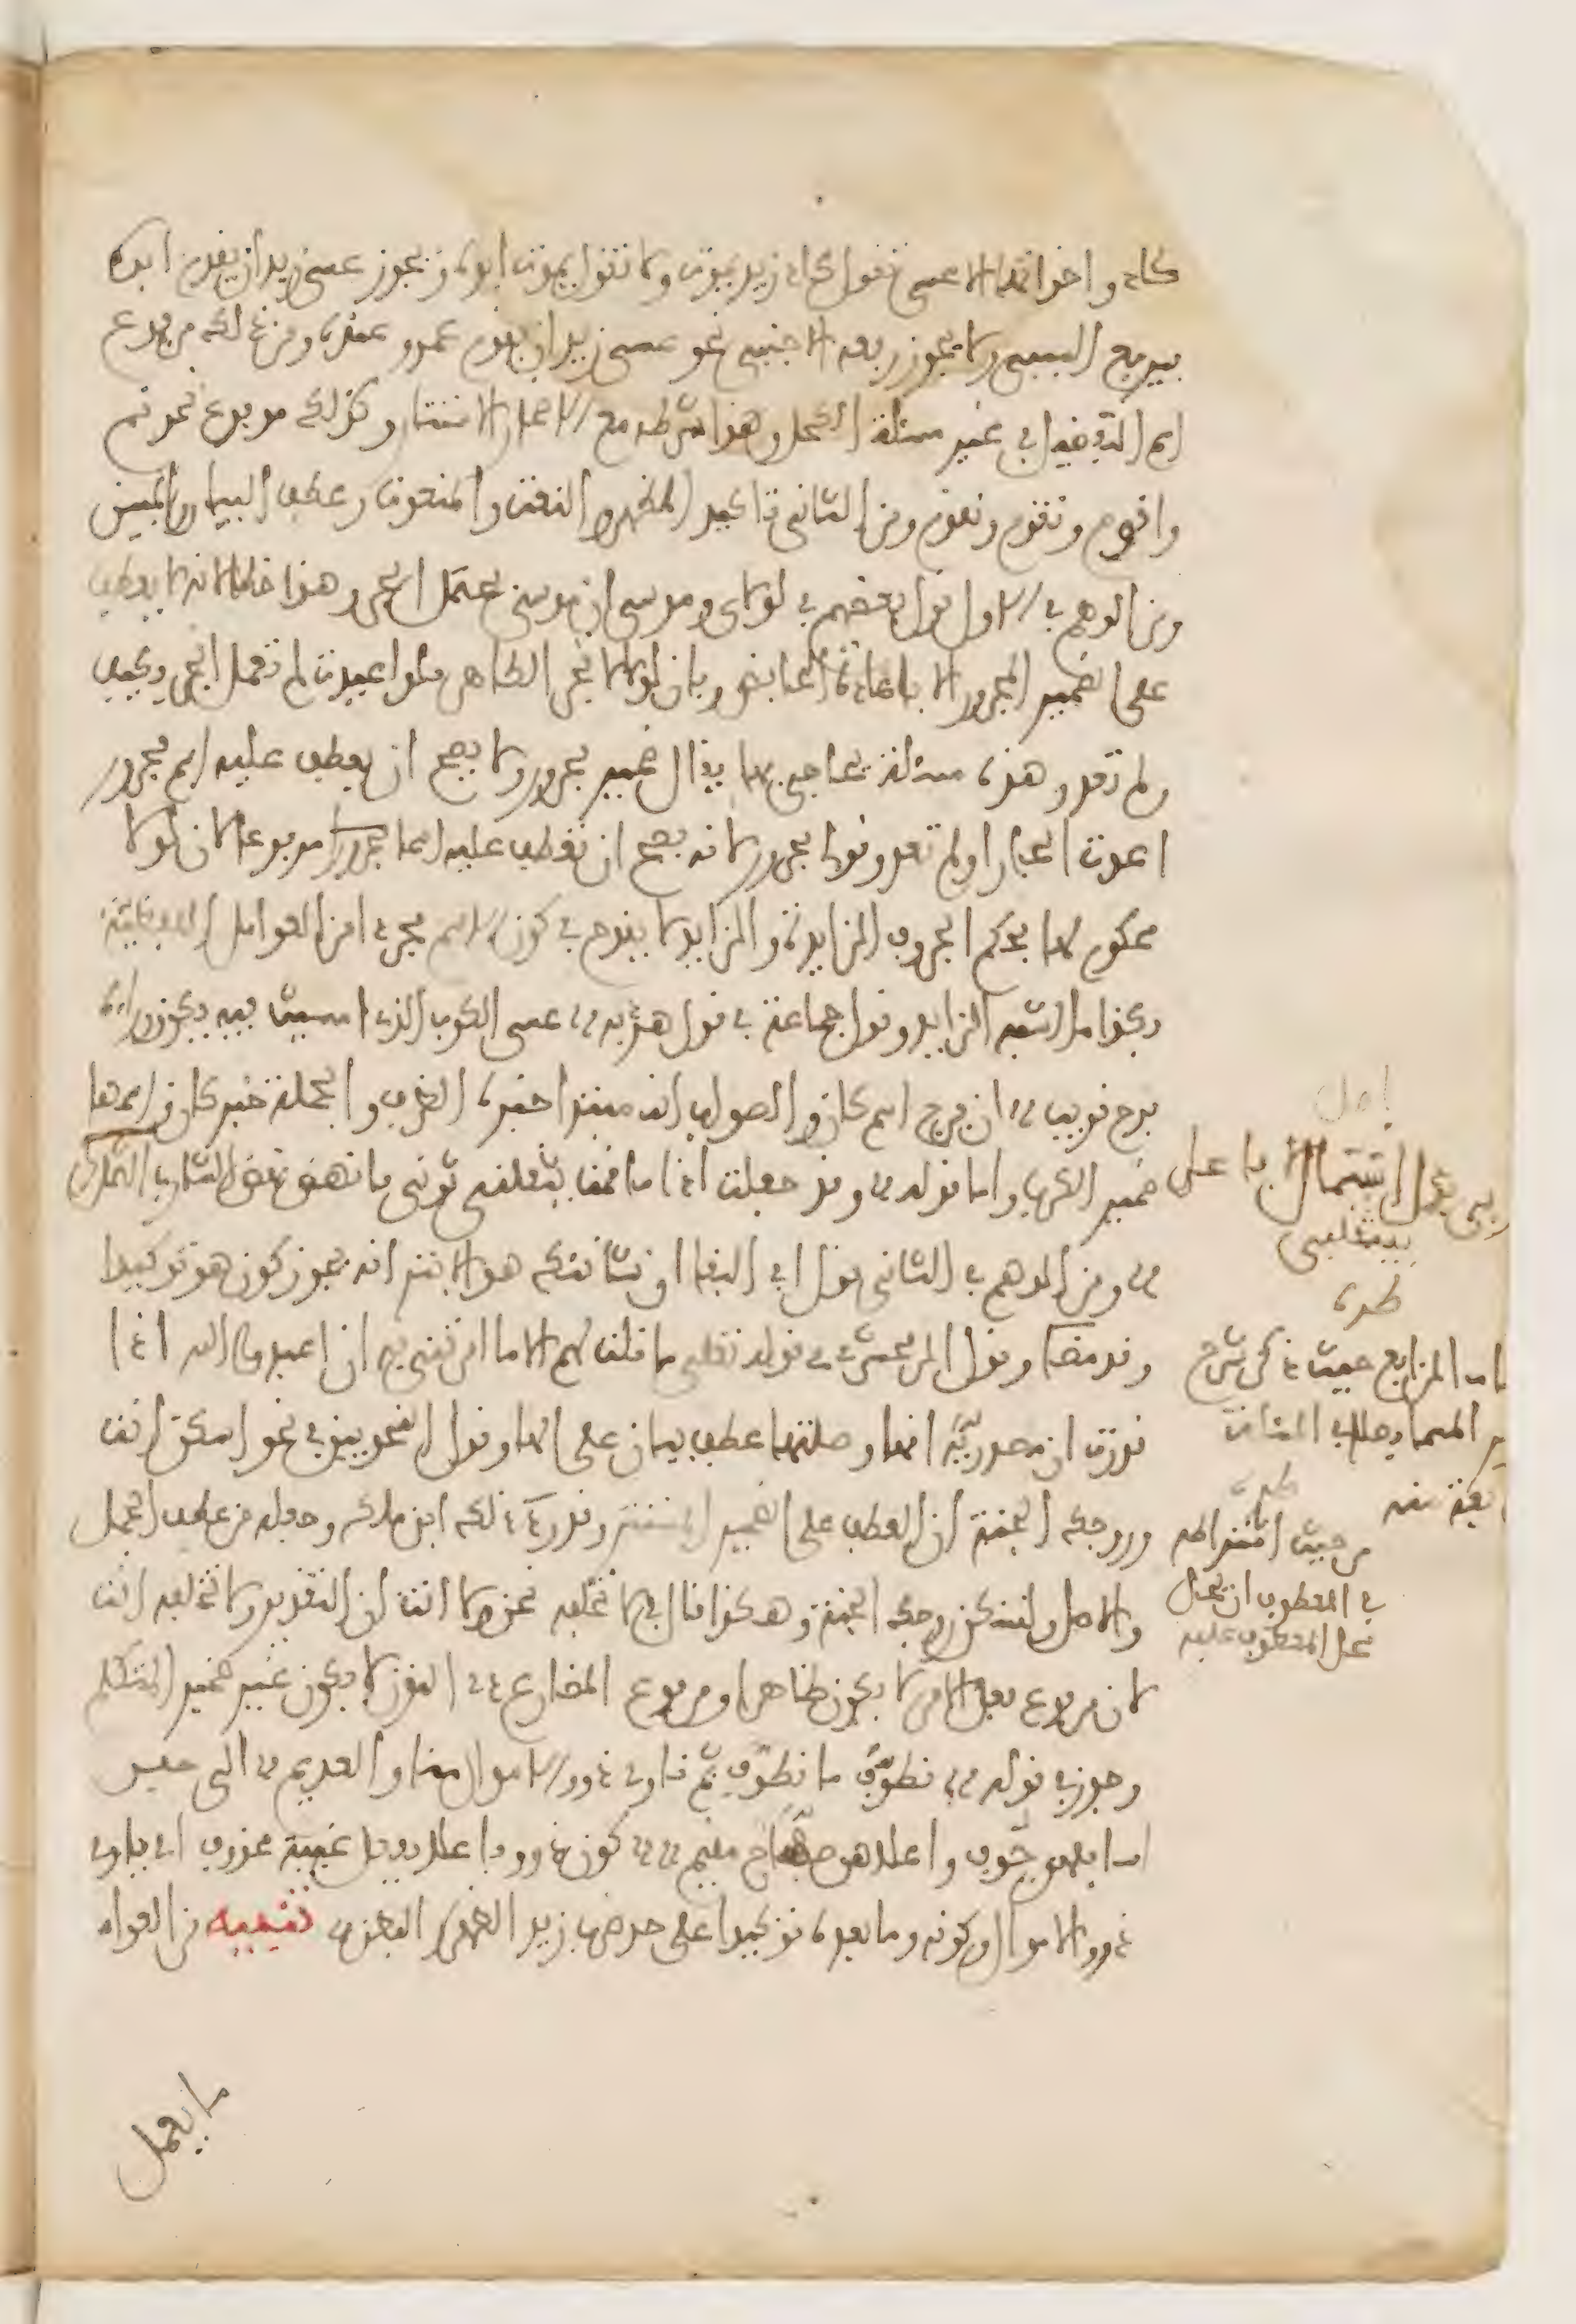 كاد واخواتها الا عسى تقول كاد زيد يموت ولا تقول يموت ابوه ويجوز عسى زيد ان يقوم ابوه
فيرفع السببي ولا يجوز رفعه الاجنبي نحو عسى زيد ان يقوم عمرو عنده ومن ذلك مرفوع
اسم التفضيل في غير مسئلة الكحل وهذا شرطه مع الاضمار الاستتار وكذلك مرفوع نحو قم
واقوم ونقوم وتقوم ومن الثاني تاكيد المظهر والنعت والمنعوت وعطف البيان والمبين
ومن الوهم في الاول قول بعضهم في لولاي وموسى ان موسى يحتمل الجر وهذا خطا لانه لا يعطف
على الضمير المجرور الا باعادة الخافض وبان لولا لا تجر الظاهر فلو اعيدت لم تعمل الجر فكيف
ولم تعد وهذه مسئلة يحاجى بها فيقال ضمير مجرور ولا يصح ان يعطف عليه اسم مجرور
اعدت الجار اولم تعد وقولي مجرور لانه يصح ان تعطف عليه اسما مرفوعا لان لولا
محكوم لها بحكم الحروف الزايدة والزايد لا يقدح في كون الاسم مجردا من العوامل اللفظية
فكذا ما اشبه الزايد وقول جماعة في قول هدبة عسى الكرب الذي امسيت فيه يكون وراءه
فرج قريب ان فرج اسم كان والصواب انه مبتدا خبره الظرف والجملة خبر كان واسمها
ضمير الكرب واما قوله وقد جعلت اذا ما قمت يثقلني ثوبي فانهض نهض الشارب الثمل
ومن الوهم في الثاني قول ابي البقاء ان شانئك هو الابتر انه يجوز كون هو توكيدا
وقد مضى وقول الزمخشري في قوله تعلى ما قلت لهم الا ما امرتني به ان اعبدوا الله اذا
قدرت ان مصدرية انها وصلتها عطف بيان على الهاء وقول النحويين في نحو اسكن انت
وزوجك الجنة ان العطف على الضمير المستتر وقد رد ذلك ابن ملك وجعله من عطف الجمل
والاصل ولتسكن زوجك الجنة وهكذا قال في لا نخلفه نحن ولا انت ان التقدير ولا تخلفه انت
لان مرفوع فعل الامر لا يكون ظاهرا ومرفوع المضارع ذي النون لا يكون غير ضمير المتكلم
وجوز في قوله نطوف ما نطوف ثم ناوي ذوو الاموال منا والعديم الى حفر
اسافلهن جوف واعلاهن صفاح مقيم كون ذوو فاعلا بفعل غيبة محذوف اي ياوي
ذوو الاموال وكونه وما بعده توكيدا على حد ضرب زيد الظهر والبطن تنبيه من العوامل
ما يعمل
اصل
بدل اشتمال لا با على
يثقلني
طرة
الرابع حيث ذكر شرح
طرة
من حيث اشتراطه
في المعطوف ان يحل
محل المعطوف عليه